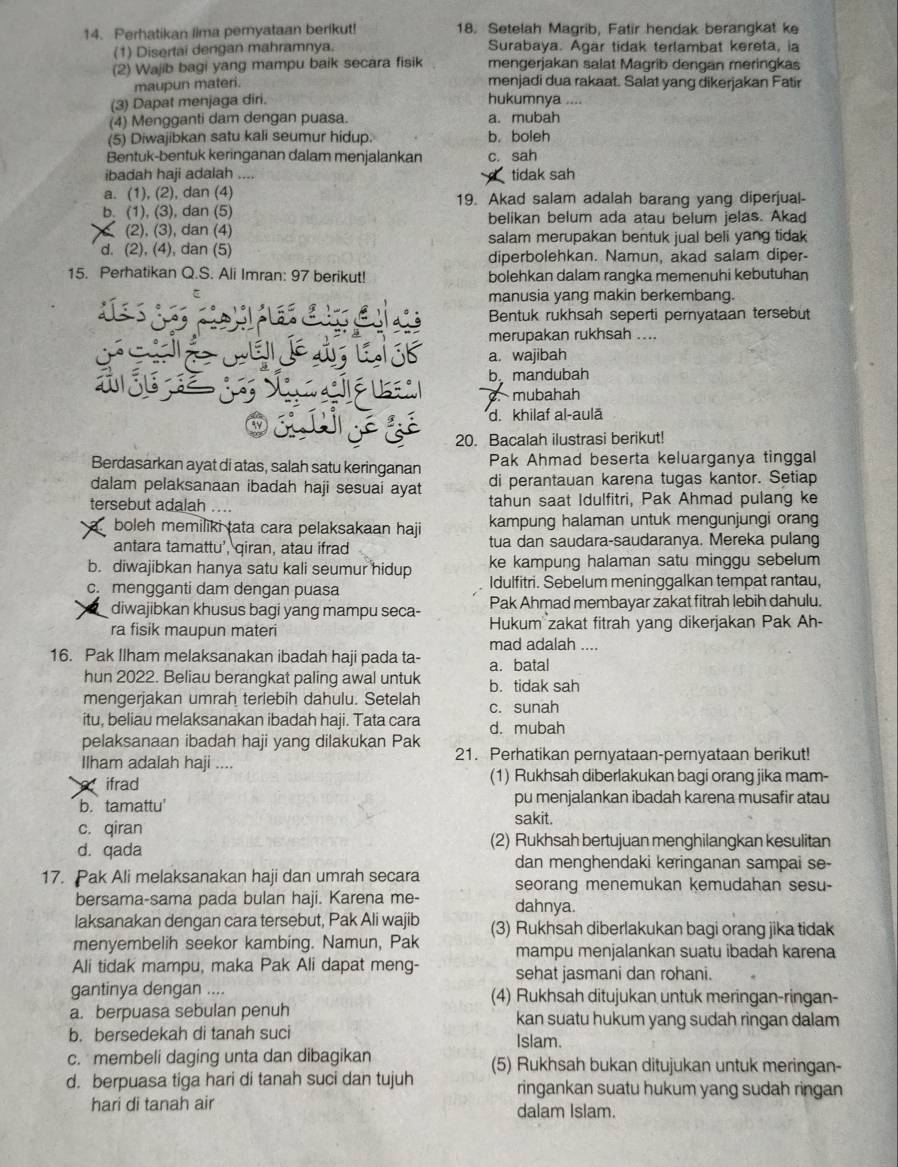 14. Perhatikan lima pernyataan berikut!
(1) Disertai dengan mahramnya.
(2) Wajib bagi yang mampu baik secara fisik
maupun materi.
(3) Dapat menjaga diri.
(4) Mengganti dam dengan puasa.
(5) Diwajibkan satu kali seumur hidup.
Bentuk-bentuk keringanan dalam menjalankan
ibadah haji adalah ....
a. (1), (2), dan (4)
b. (1), (3), dan (5)
(2), (3), dan (4)
d. (2), (4), dan (5)
15. Perhatikan Q.S. Ali Imran: 97 berikut!
فِيْهِ اٰيٰتٌۢ بَيِّنٰتٌ مَّقَامُ اِبْرٰهِيْمَ ەۚ وَمَنْ دَخَلَهٗ
كَانَ اٰمِنًاۗ وَلِلّٰهِ عَلَى النَّاسِ حِجُّ الْبَيْتِ مَنِ
اسْتَطَاعَ اِلَيْهِ سَبِيْلًاۗ وَمَنْ كَفَرَ فَاِنَّ اللّٰهَ
غَنِيٌّ عَنِ الْعٰلَمِيْنَ ٩٧
Berdasarkan ayat di atas, salah satu keringanan
dalam pelaksanaan ibadah haji sesuai ayat
tersebut adalah ....
a. boleh memiliki tata cara pelaksakaan haji
antara tamattu', qiran, atau ifrad
b. diwajibkan hanya satu kali seumur hidup
c. mengganti dam dengan puasa
diwajibkan khusus bagi yang mampu seca-
ra fisik maupun materi
16. Pak Ilham melaksanakan ibadah haji pada ta-
hun 2022. Beliau berangkat paling awal untuk
mengerjakan umrah terlebih dahulu. Setelah
itu, beliau melaksanakan ibadah haji. Tata cara
pelaksanaan ibadah haji yang dilakukan Pak
Ilham adalah haji ....
a. ifrad
b. tamattu'
c. qiran
d. qada
17. Pak Ali melaksanakan haji dan umrah secara
bersama-sama pada bulan haji. Karena me-
laksanakan dengan cara tersebut, Pak Ali wajib
menyembelih seekor kambing. Namun, Pak
Ali tidak mampu, maka Pak Ali dapat meng-
gantinya dengan ....
a. berpuasa sebulan penuh
b. bersedekah di tanah suci
c. membeli daging unta dan dibagikan
d. berpuasa tiga hari di tanah suci dan tujuh
hari di tanah air
18. Setelah Magrib, Fatir hendak berangkat ke
Surabaya. Agar tidak terlambat kereta, ia
mengerjakan salat Magrib dengan meringkas
menjadi dua rakaat. Salat yang dikerjakan Fatir
hukumnya ....
a. mubah
b. boleh
c. sah
d. tidak sah
19. Akad salam adalah barang yang diperjual-
belikan belum ada atau belum jelas. Akad
salam merupakan bentuk jual beli yang tidak
diperbolehkan. Namun, akad salam diper-
bolehkan dalam rangka memenuhi kebutuhan
manusia yang makin berkembang.
Bentuk rukhsah seperti pernyataan tersebut
merupakan rukhsah ....
a. wajibah
b. mandubah
c. mubahah
d. khilaf al-aulā
20. Bacalah ilustrasi berikut!
Pak Ahmad beserta keluarganya tinggal
di perantauan karena tugas kantor. Setiap
tahun saat Idulfitri, Pak Ahmad pulang ke
kampung halaman untuk mengunjungi orang
tua dan saudara-saudaranya. Mereka pulang
ke kampung halaman satu minggu sebelum
Idulfitri. Sebelum meninggalkan tempat rantau,
Pak Ahmad membayar zakat fitrah lebih dahulu.
Hukum zakat fitrah yang dikerjakan Pak Ah-
mad adalah ....
a. batal
b. tidak sah
c. sunah
d. mubah
21. Perhatikan pernyataan-pernyataan berikut!
(1) Rukhsah diberlakukan bagi orang jika mam-
pu menjalankan ibadah karena musafir atau
sakit.
(2) Rukhsah bertujuan menghilangkan kesulitan
dan menghendaki keringanan sampai se-
seorang menemukan kemudahan sesu-
dahnya.
(3) Rukhsah diberlakukan bagi orang jika tidak
mampu menjalankan suatu ibadah karena
sehat jasmani dan rohani.
(4) Rukhsah ditujukan untuk meringan-ringan-
kan suatu hukum yang sudah ringan dalam
Islam.
(5) Rukhsah bukan ditujukan untuk meringan-
ringankan suatu hukum yang sudah ringan
dalam Islam.